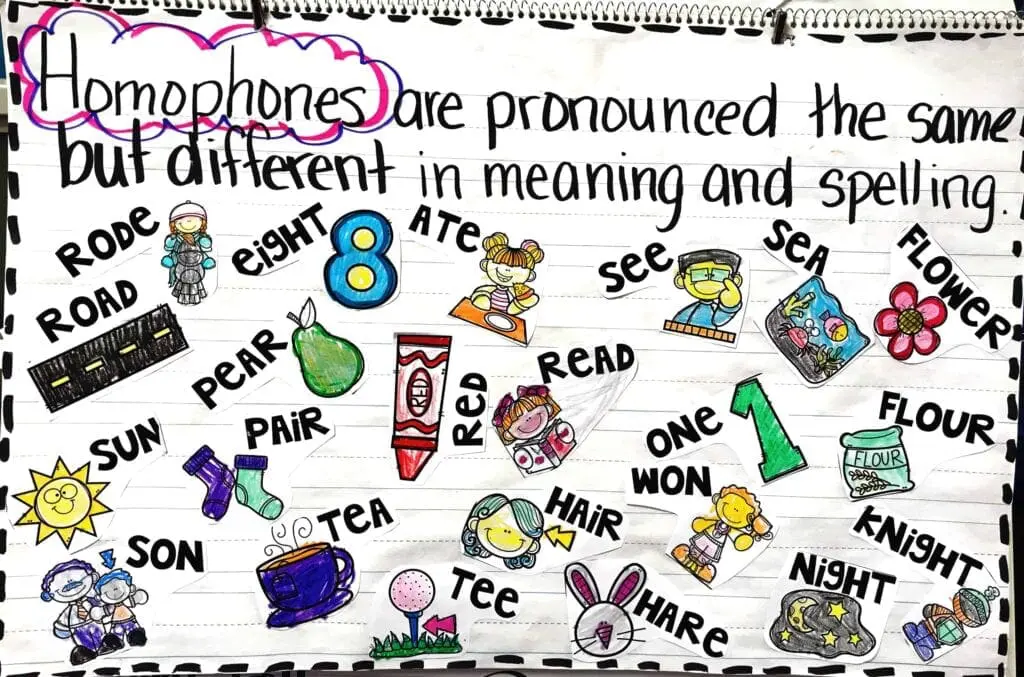 Homophones are pronounced the same
but different in meaning and spelling.
RODE
EIGHT
ATE
SEE
SEA
FLOWER
ROAD
PEAR
RED
RED
READ
ONE
1
FLOUR
FLOUR
8
SUN
PAIR
WON
TEA
HAIR
KNIGHT
SON
TEE
HARE
NIGHT